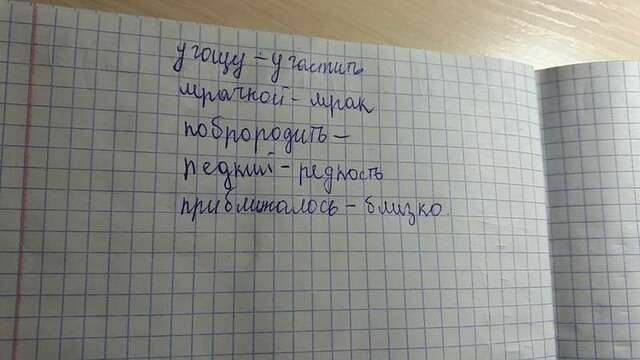 угощу - угостить
мрачной - мрак
поброродить -
редкий - редкость
приближалось - близко.